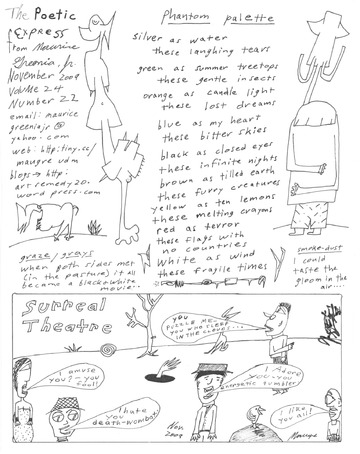 The Poetic
Express
from Maurice
Greenia, Jr.
November 2009
Volume 24
Number 22
email: maurice
greeniajr@
yahoo.com
web: http:tiny.cc/
maugre udm
blogs→ http:
art remedy 20.
word press.com
graze/grays
when both sides met
(in the pasture) it all
became a black+white
movie...
Phantom palette
silver as water
these laughing tears
green as summer treetops
these gentle insects
orange as candle light
these lost dreams
blue as my heart
these bitter skies
black as closed eyes
these infinite nights
brown as tilled earth
these furry creatures
yellow as ten lemons
these melting crayons
red as terror
these flags with
no countries
white as wind
these fragile times
smoke-dust
I could
taste the
gloom in the
air...
Surreal
Theatre
you
puzzle me
you who sleep
in the clouds...
I amuse
you?—you
fool!
I hate
death-wombats
I adore
you—you
energetic tumbler
I like
you all!
Nov
2009
Maurice